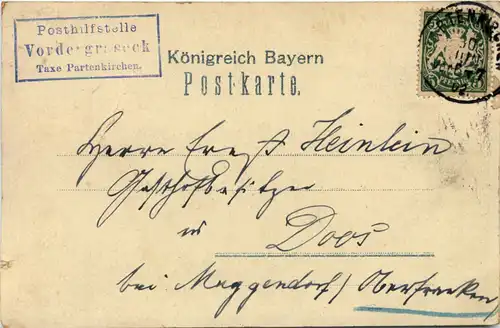 Posthilfstelle
Vordergraseck
Taxe Partenkirchen.
Königreich Bayern
Postkarte.
Herrn Ernst Heinlein
Gasthofbesitzer
in Doos
bei Muggendorf/Oberfranken